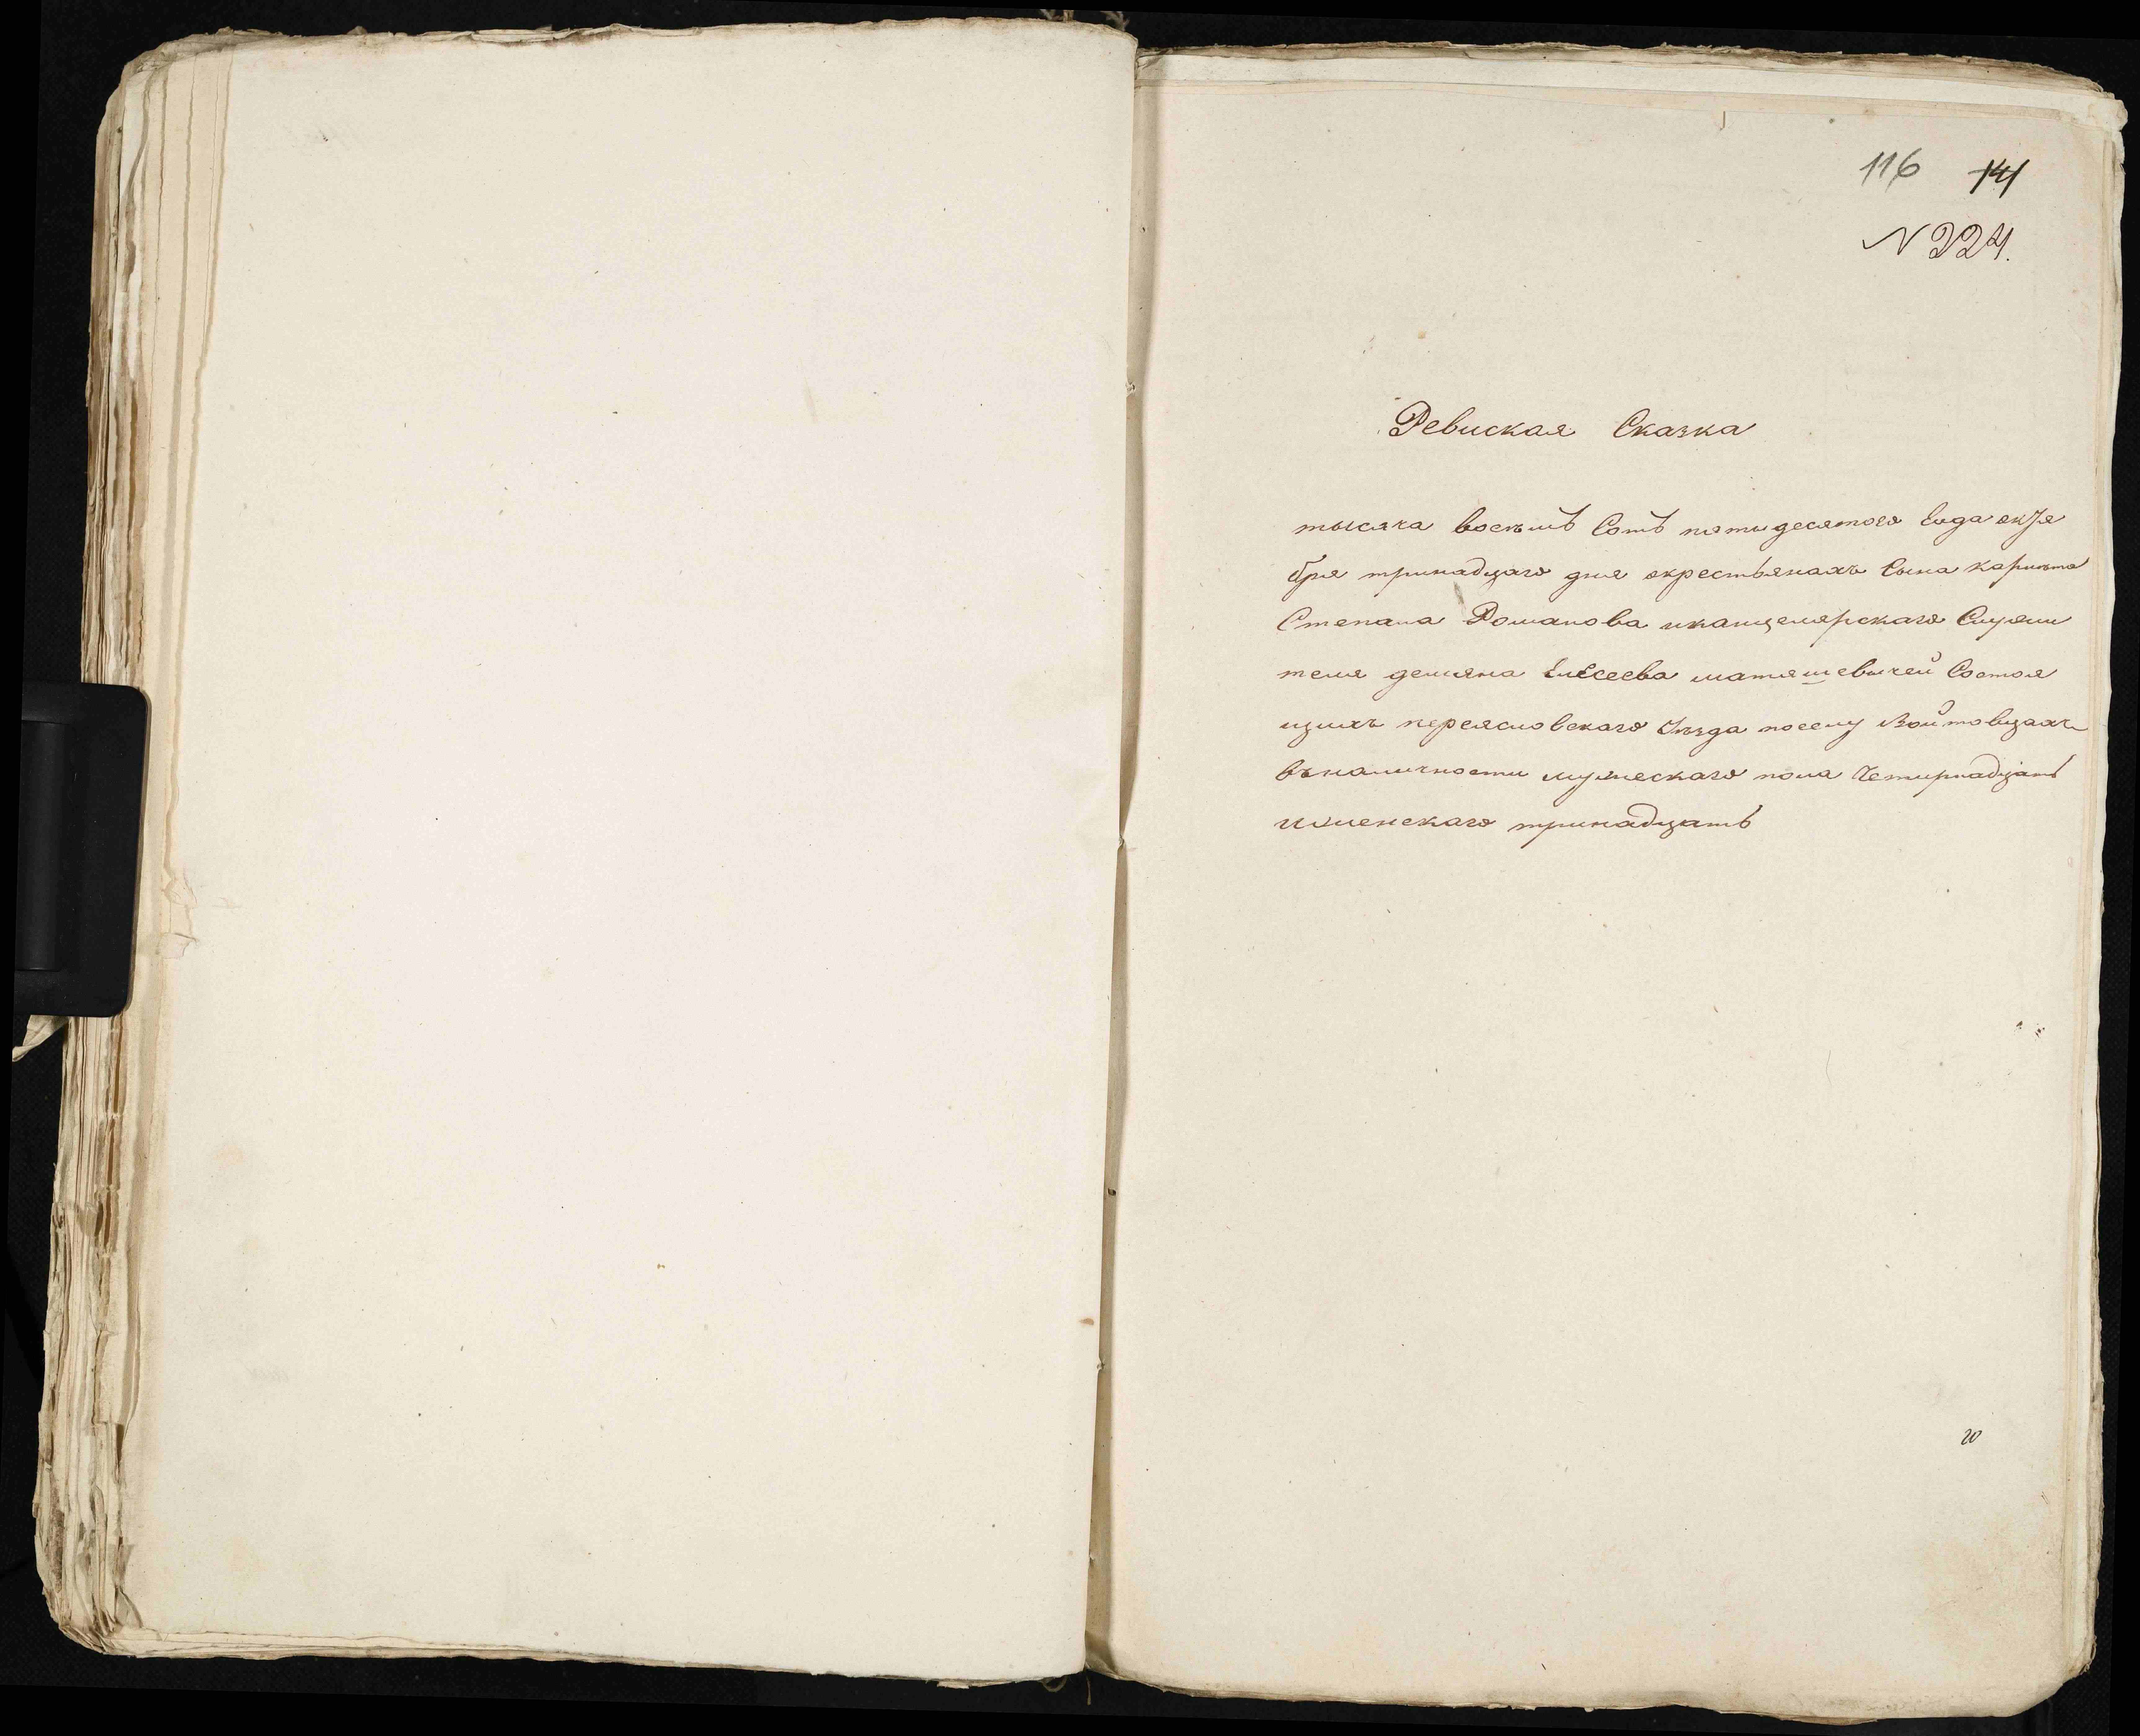 116 141
N 224.
Ревиская Сказка
тысяча восемъ Сотъ пятидесятого Года октя
бря тринадцаго дня окрестьянахъ Сына
Степана Романова иканцелярскаго Служи
теля демяна Елисеева матяшевичей Состоя
щихъ переясловскаго Уезда поселу Войтовцахъ
въналичности мужескаго пола Четирнадцать
иженскаго тринадцать
20